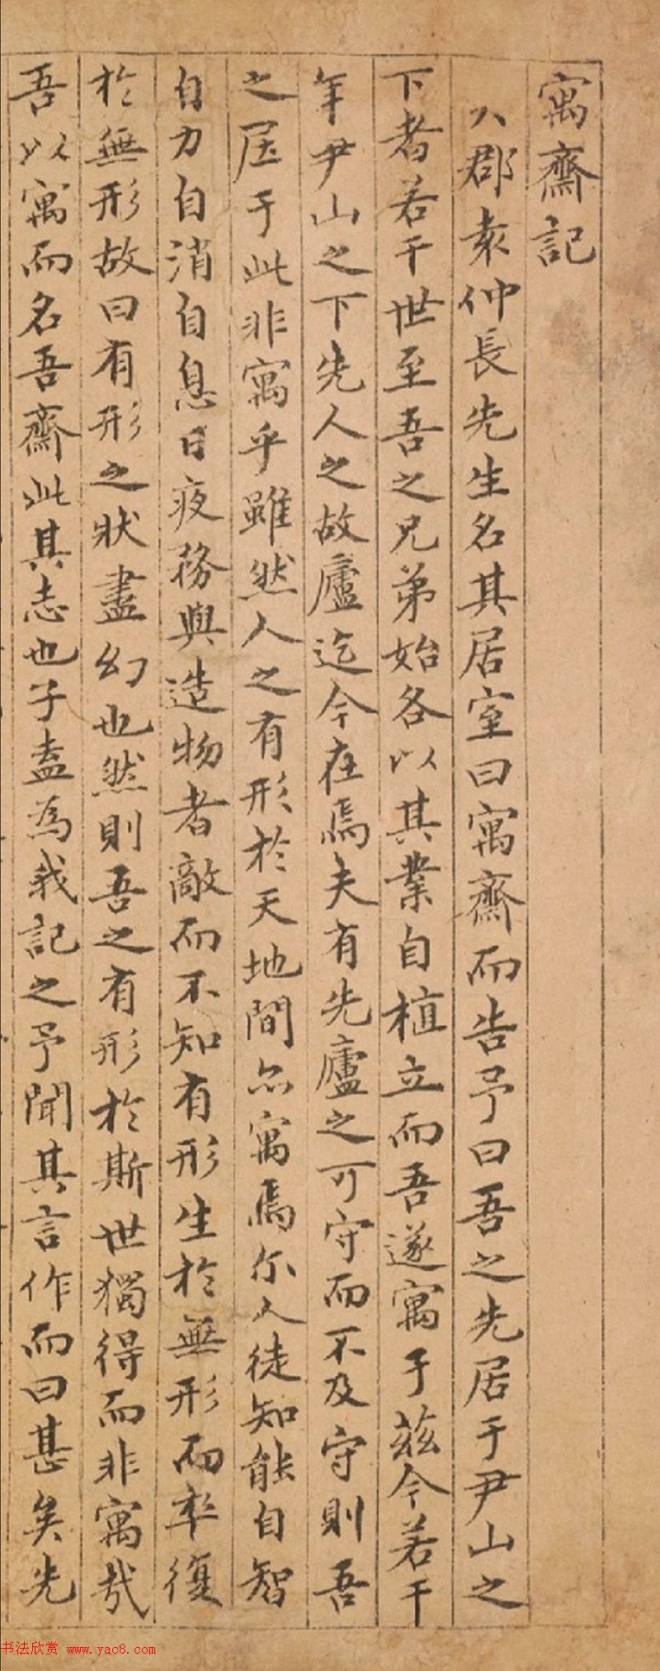 寓齋記
八郡袁仲長先生名其居室曰寓齋而告予曰吾之先居于尹山之
下者若干世至吾之兄弟始各以其業自植立而吾遂寓于茲今若干
年尹山之下先人之故廬迄今在焉夫有先廬之可守而不及守則吾
之居于此非寓乎雖然人之有形於天地間亦寓焉尔人徒知能自智
自力自消自息日夜務與造物者敵而不知有形生於無形而率復
於無形故曰有形之狀盡幻也然則吾之有形於斯世獨得而非寓哉
吾以寓而名吾齋此其志也子盍為我記之予聞其言作而曰甚矣先
书法欣赏 www.yac8.com